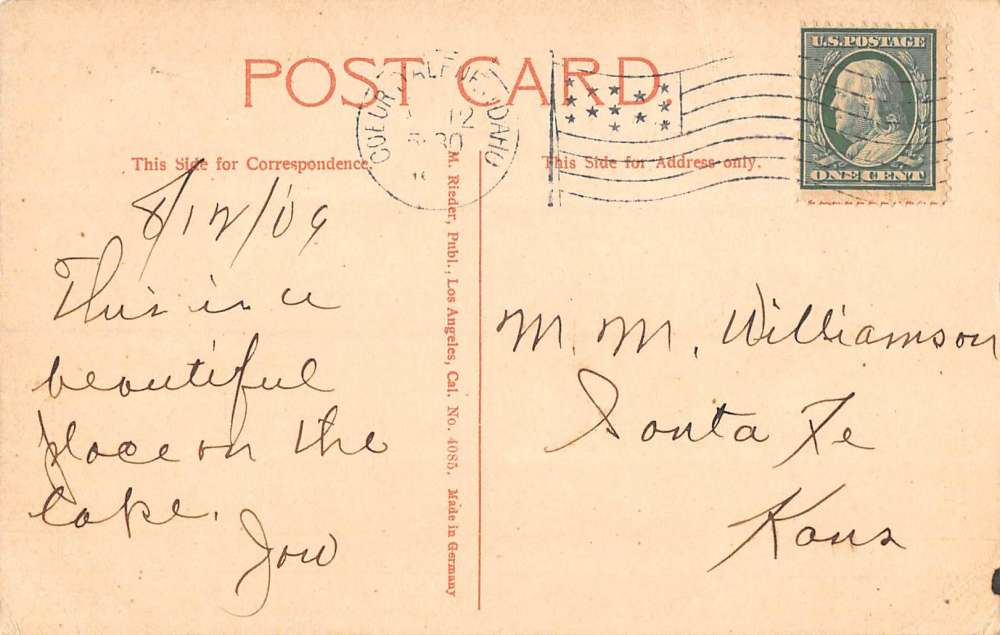 POST CARD
COEUR D'ALENE, IDAHO
12
30
U.S. POSTAGE
ONE CENT
This Side for Correspondence.
This Side for Address only.
M. Rieder, Publ., Los Angeles, Cal. No. 4085. Made in Germany
8/12/09
This is a
beautiful
place on the
lake.
M. M. Williamson
Santa Fe
Kans